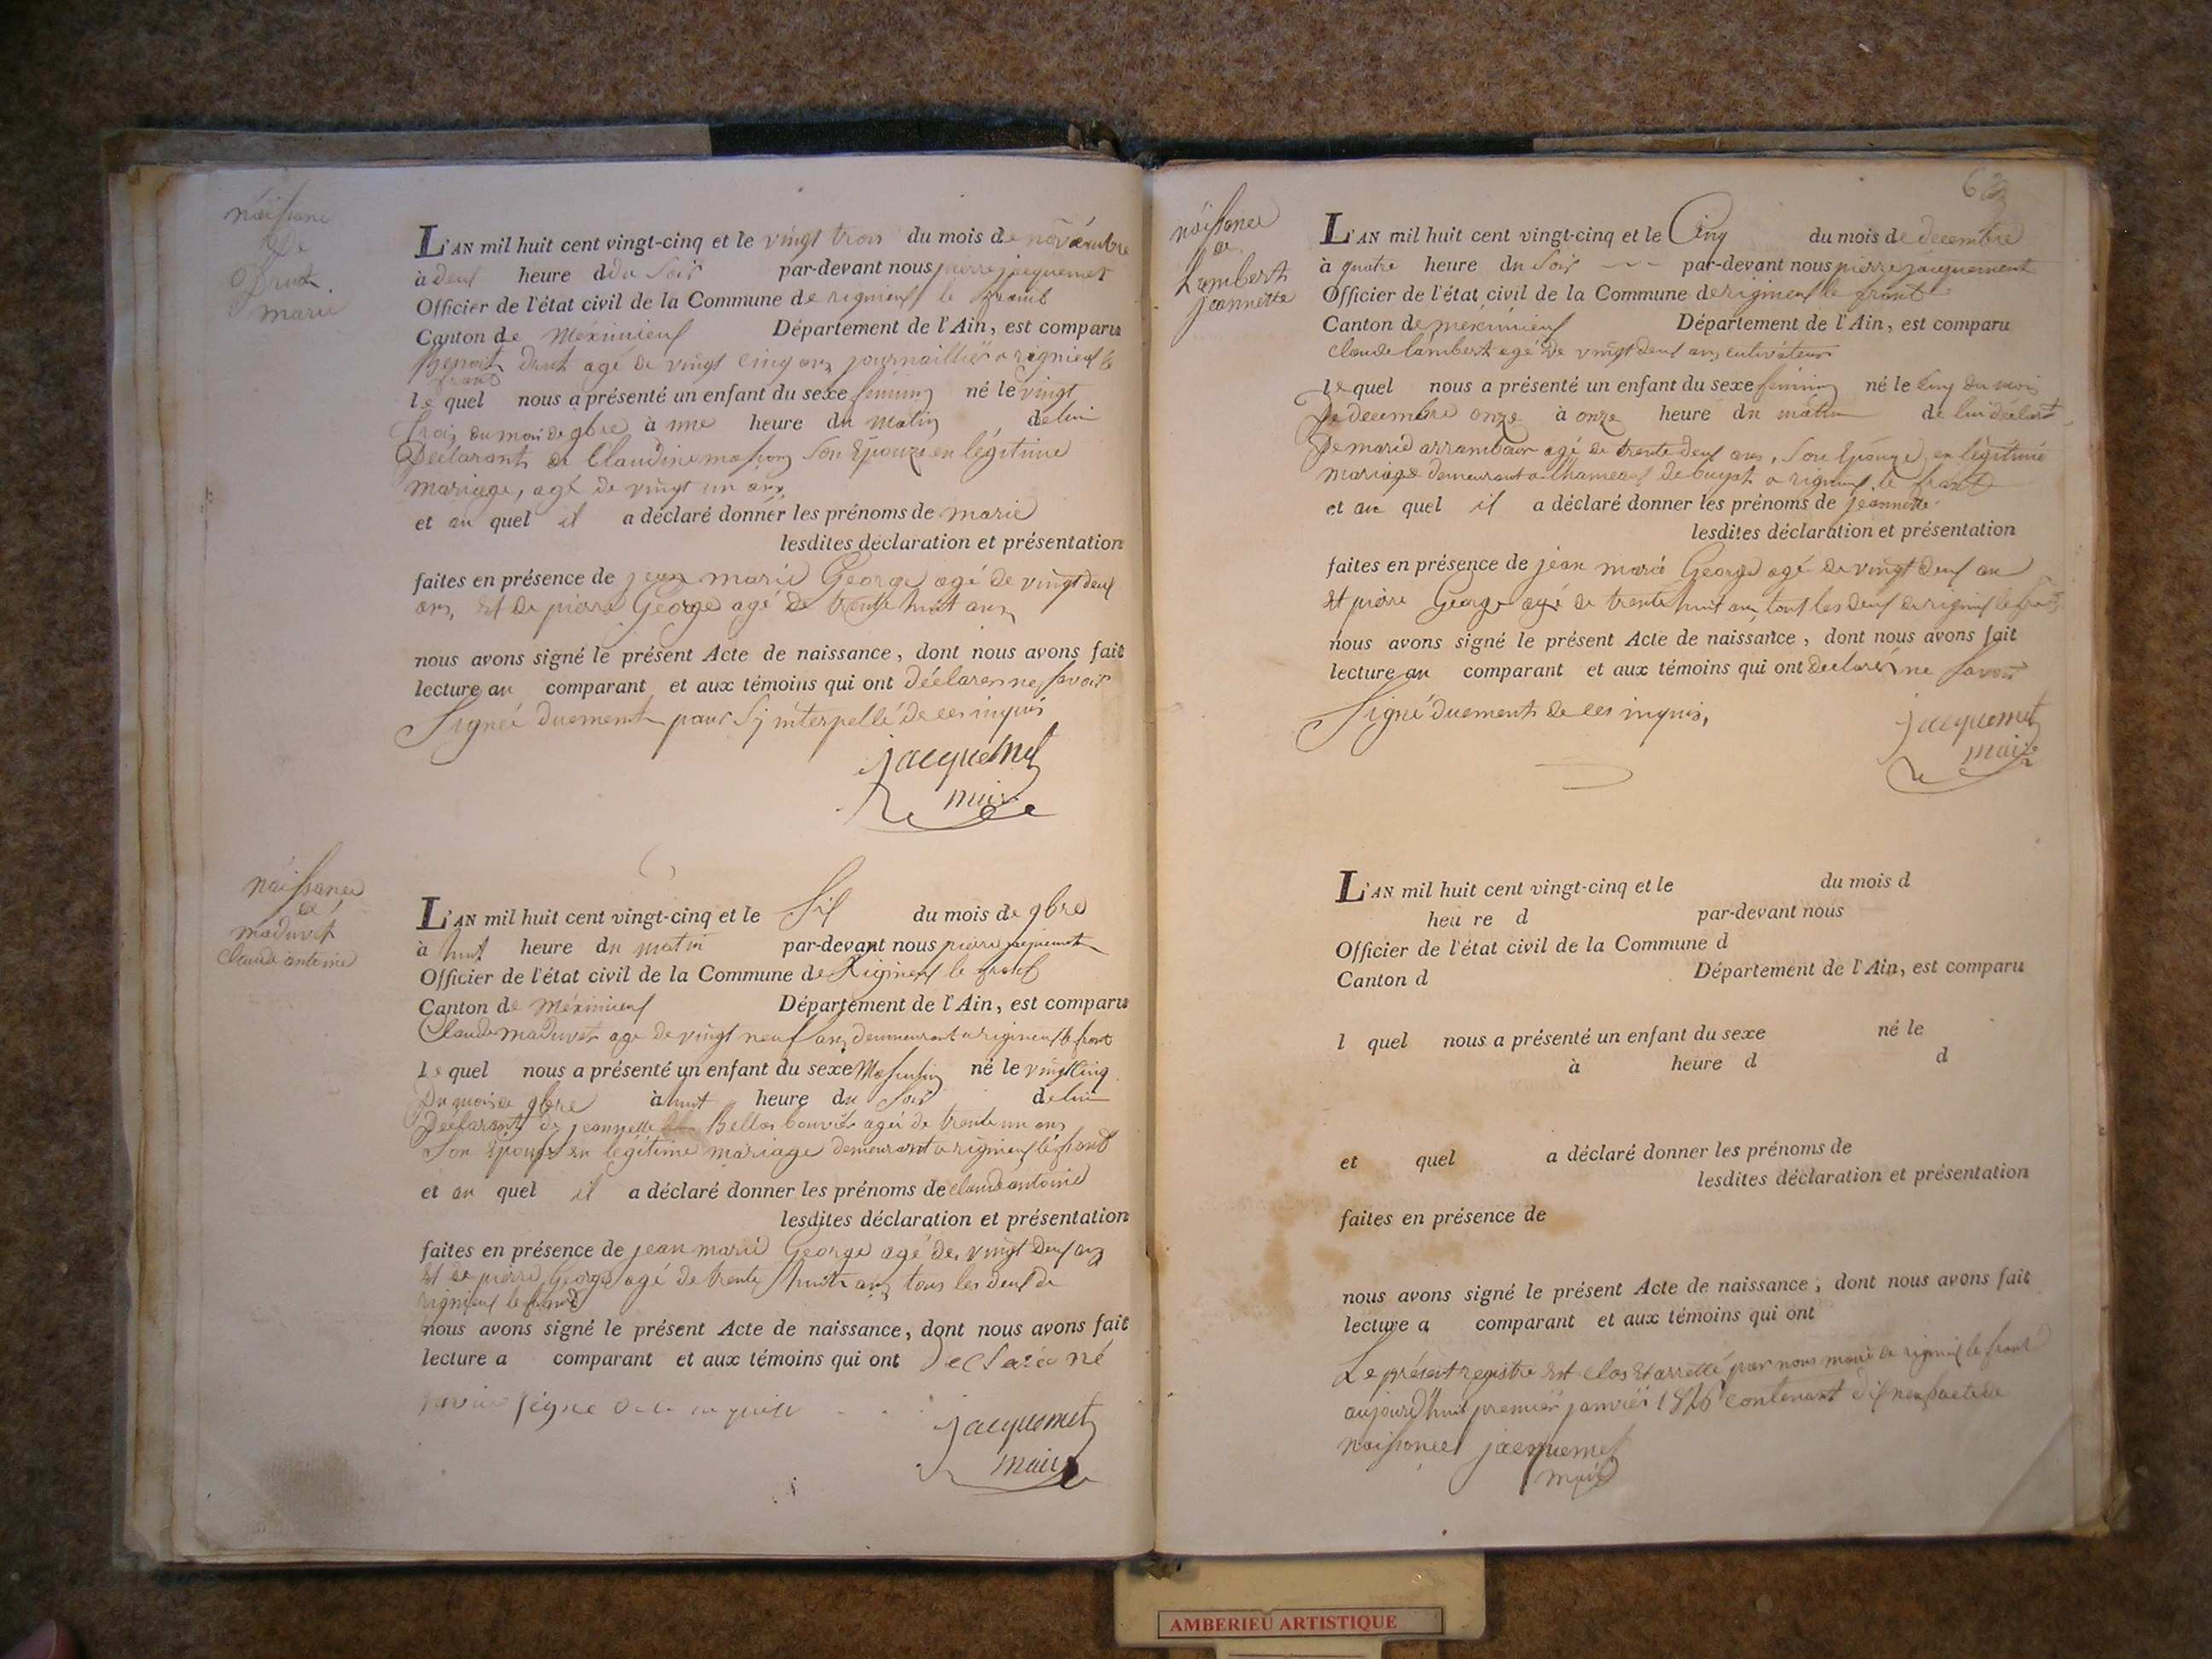 naissance
de
Drut
marie
L'AN mil huit cent vingt-cinq et le vingt trois du mois de novembre
à deux heure d du soir par-devant nous pierre jacquemet
Officier de l'état civil de la Commune de rignieux le franc
Canton de Méximieux Département de l'Ain, est comparu
Benoit Drut agé de vingt cinq ans journaillier a rignieux le
franc
le quel nous a présenté un enfant du sexe féminin né le vingt
trois du mois de 9bre à une heure du matin de lui
Déclarant de Claudine masson son Epouze en légitime
mariage, agé de vingt un ans
et au quel il a déclaré donner les prénoms de marie
lesdites déclaration et présentation
faites en présence de jean marie George agé de vingt deux
ans, et de pierre George agé de trente huit ans
nous avons signé le présent Acte de naissance, dont nous avons fait
lecture au comparant et aux témoins qui ont déclarer ne savoir
Signeé duement pour sy interpellé de ces inquis
jacquemet
maire
naissance
de
maduvet
claude antoine
L'AN mil huit cent vingt-cinq et le Six du mois de 9bre
à huit heure du matin par-devant nous pierre jacquemet
Officier de l'état civil de la Commune de Rignieux le franc
Canton de Méximieux Département de l'Ain, est comparu
Claude maduvet age de vingt neuf ans demeurant a rignieux le franc
le quel nous a présenté un enfant du sexe Masculin né le vingt Cinq
Du mois de 9bre à huit heure du soir de lui
Déclarant de jeannette Bellos bouvier agé de trente un ans
Son Epouse en légitime mariage demeurant a rignieux le franc
et au quel il a déclaré donner les prénoms de claude antoine
lesdites déclaration et présentation
faites en présence de jean marie George agé de vingt deux ans
et de pierre George agé de trente huit ans tous les deux de
rignieux le franc
nous avons signé le présent Acte de naissance, dont nous avons fait
lecture a comparant et aux témoins qui ont Declaré né
savoir signe
jacquemet
maire
62
naissance
de
Lambert
jeannette
L'AN mil huit cent vingt-cinq et le Cinq du mois de decembre
à quatre heure du soir par-devant nous pierre jacquement
Officier de l'état civil de la Commune de rignieux le franc
Canton de méximieux Département de l'Ain, est comparu
claude lambert agé de vingt deux ans cultivateur
le quel nous a présenté un enfant du sexe féminin né le cinq du mois
De decembre onze à onze heure du matin de lui déclart
De marie arrambour agé de trente deux ans, son Epouze, en légitime
mariage demeurant a lhameaux de buyat a rignieux le franc
et au quel il a déclaré donner les prénoms de jeannette
lesdites déclaration et présentation
faites en présence de jean marie George agé de vingt deux an
et pierre George agé de trente huit ans, tous les deux de rignieux le franc
nous avons signé le présent Acte de naissance, dont nous avons fait
lecture au comparant et aux témoins qui ont declarés ne savoir
Signé duement de ces inquis,
jacquemet
maire
L'AN mil huit cent vingt-cinq et le du mois d
heu re d par-devant nous
Officier de l'état civil de la Commune d
Canton d Département de l'Ain, est comparu
l quel nous a présenté un enfant du sexe né le
à heure d d
et quel a déclaré donner les prénoms de
lesdites déclaration et présentation
faites en présence de
nous avons signé le présent Acte de naissance, dont nous avons fait
lecture a comparant et aux témoins qui ont
Le présent registre est clos et arretté par nous maire de rignieux le franc
aujourd'huit premier janvier 1826 contenant dix neuf acte de
naissances jacquemet
maire
AMBERIEU ARTISTIQUE